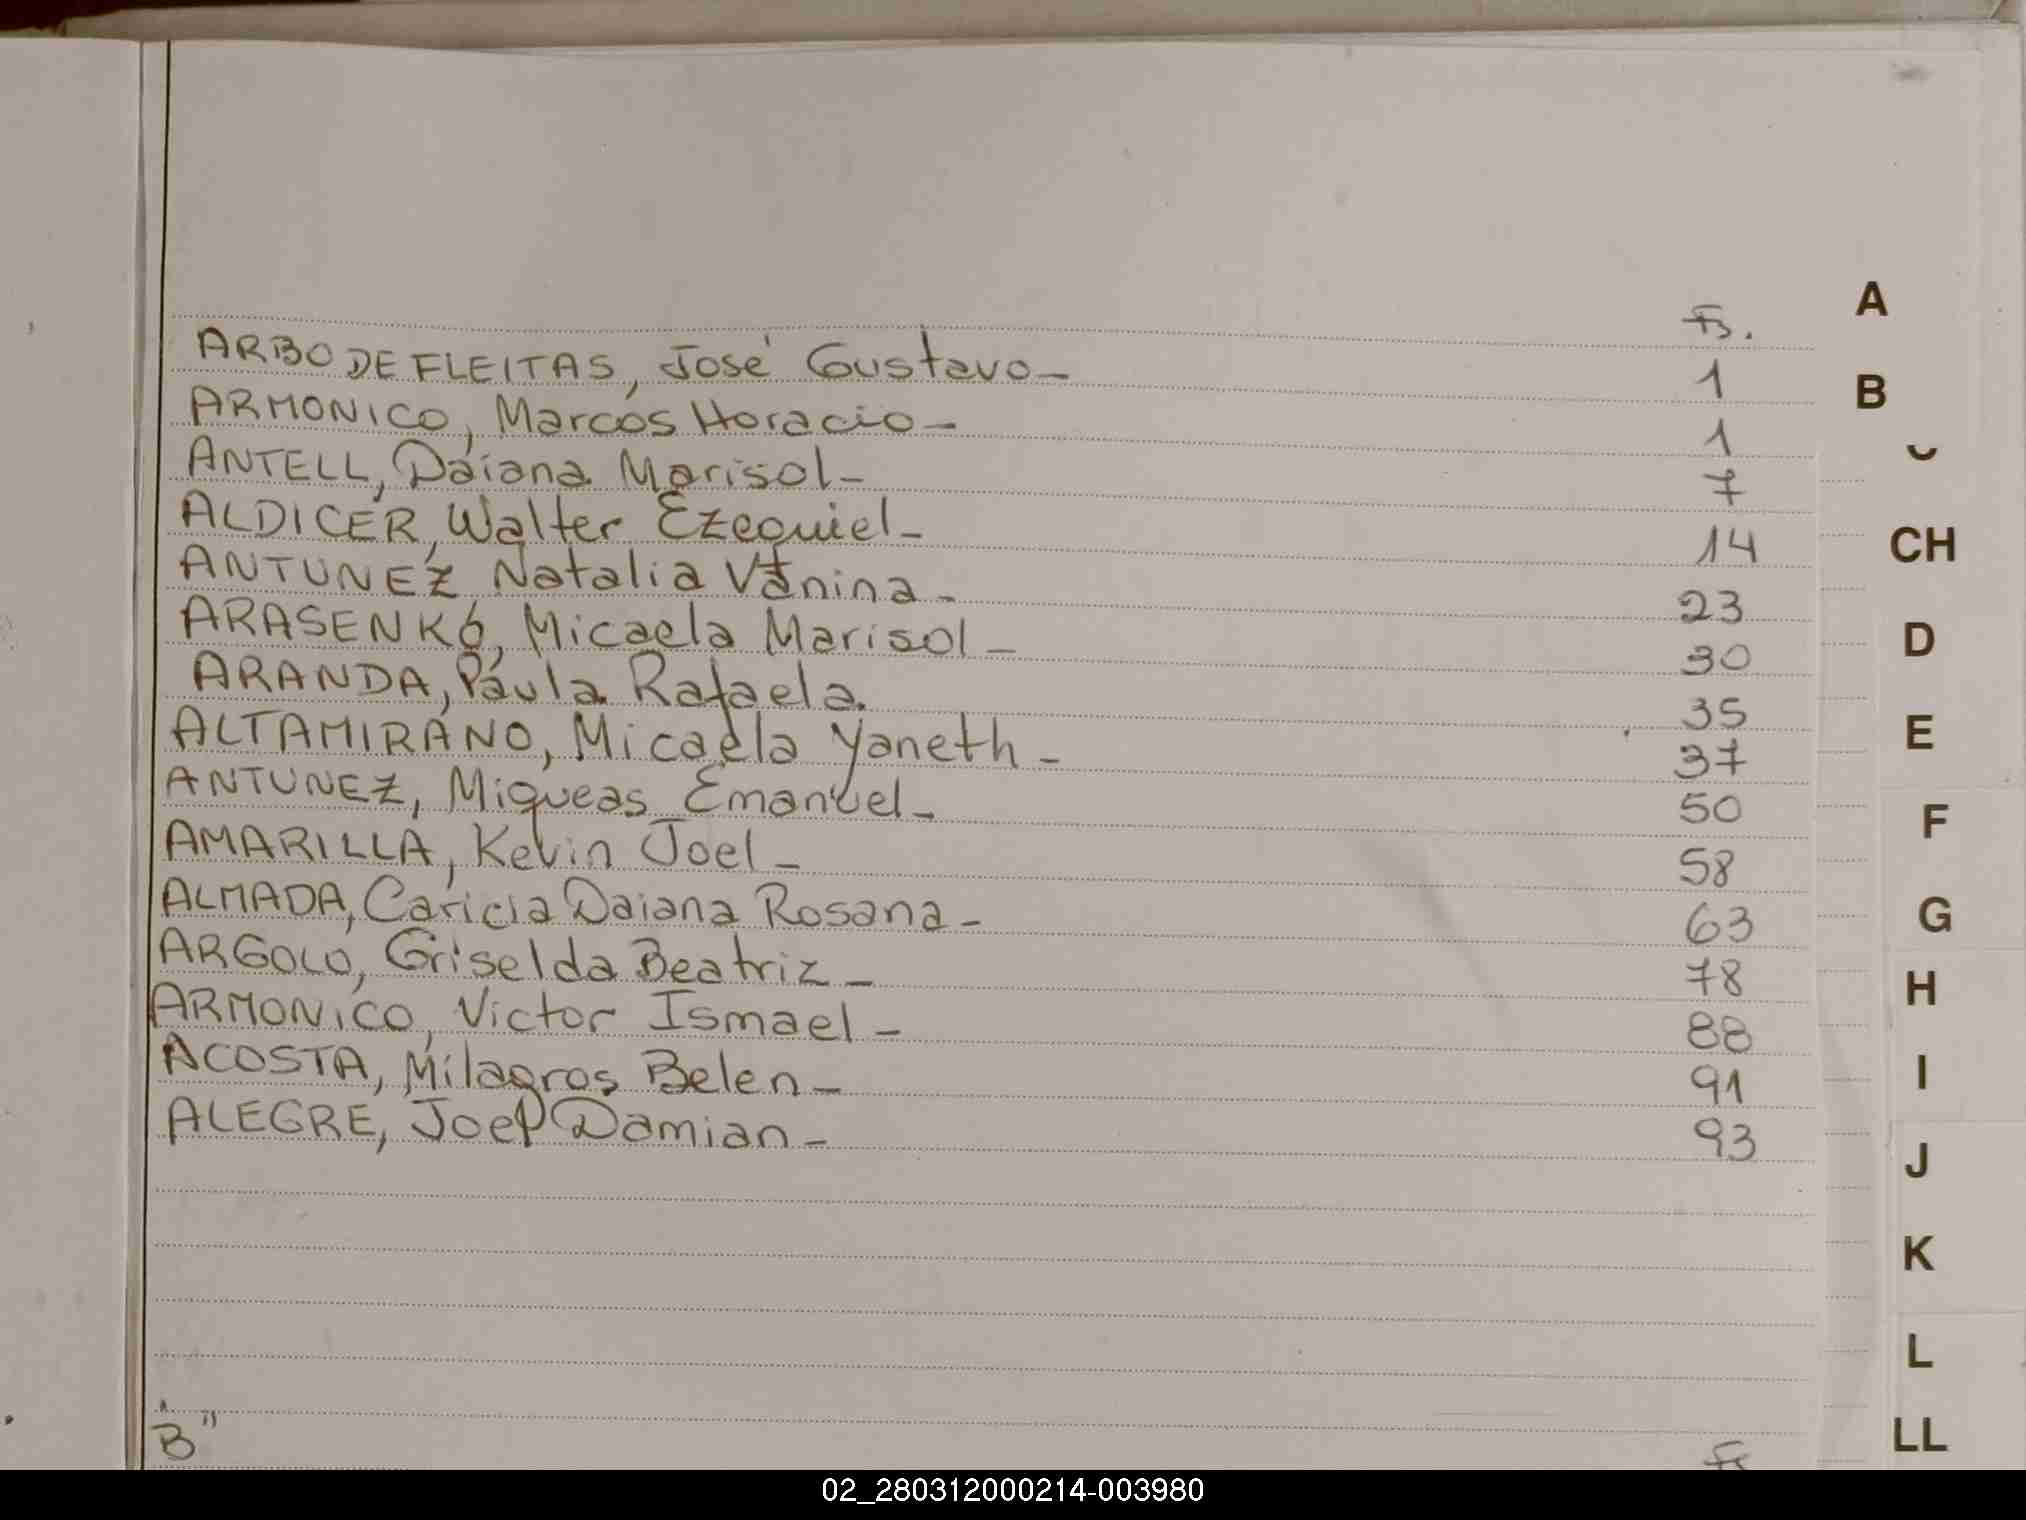 Fs.
ARBO DE FLEITAS, José Gustavo- 1
ARMONICO, Marcos Horacio- 1
ANTELL, Daiana Marisol- 7
ALDICER, Walter Ezequiel- 14
ANTUNEZ Natalia Vanina- 23
ARASENKO, Micaela Marisol- 30
ARANDA, Paula Rafaela. 35
ALTAMIRANO, Micaela Yaneth- 37
ANTUNEZ, Miqueas Emanuel- 50
AMARILLA, Kevin Joel- 58
ALMADA, Caricia Daiana Rosana- 63
ARGOLO, Griselda Beatriz- 78
ARMONICO, Victor Ismael- 88
ACOSTA, Milagros Belen- 91
ALEGRE, Joel Damian- 93
"B" Fs
A
B
CH
D
E
F
G
H
I
J
K
L
LL
02_280312000214-003980